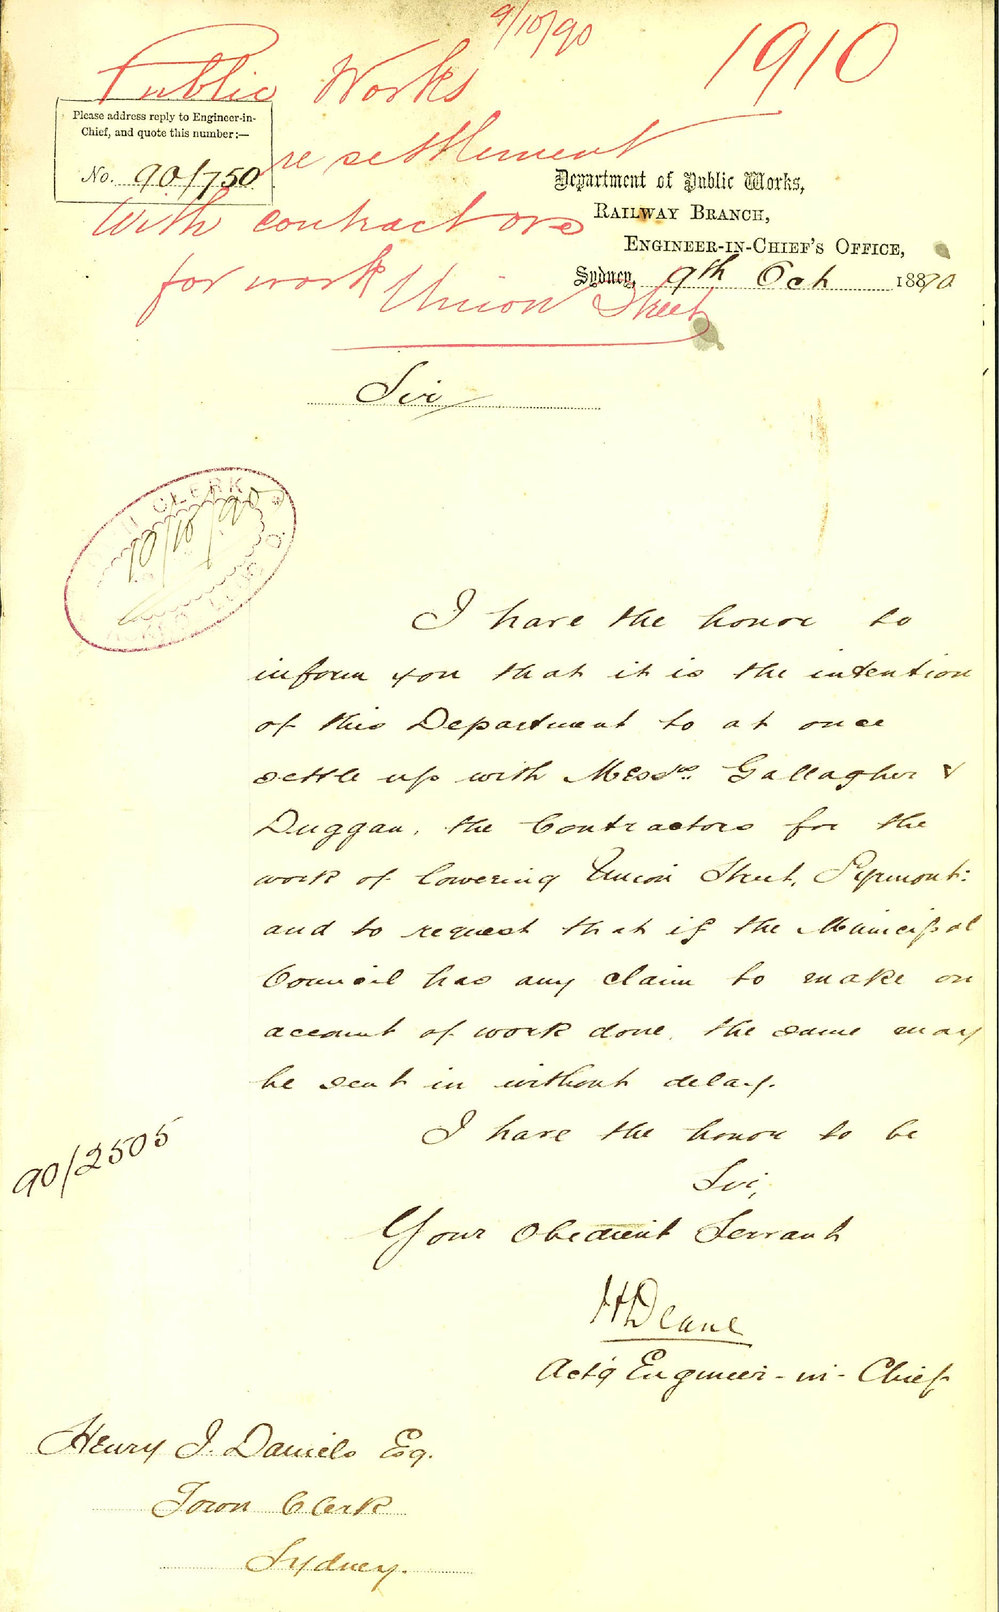 9/10/90
1910
Public Works
re settlement
with contractors
for work Union Street
Please address reply to Engineer-in-
Chief, and quote this number:—
No. 90/750
Department of Public Works,
Railway Branch,
Engineer-in-Chief's Office,
Sydney, 9th Oct 1890
Sir
CLERK'S
10/10/90
I have the honor to
inform you that it is the intention
of this Department to at once
settle up with Messrs. Gallagher &
Duggan, the Contractors for the
work of lowering Union Street, Pyrmont:
and to request that if the Municipal
Council has any claim to make on
account of work done, the same may
be sent in without delay.
I have the honor to be
Sir,
Your Obedient Servant
90/2505
H Deane
Act'g Engineer-in-Chief
Henry J. Daniels Esq.
Town Clerk
Sydney.